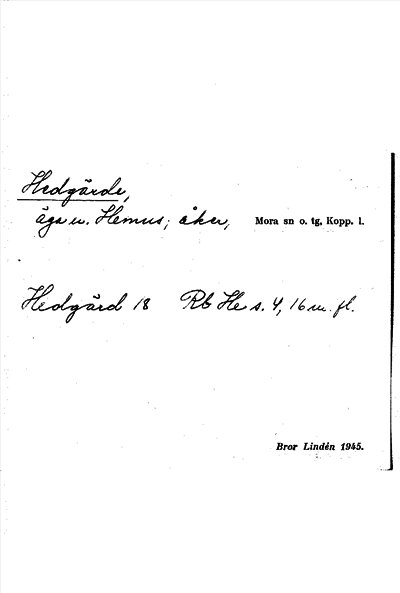 Hedgärde,
äga u. Hemus; åker, Mora sn o. tg, Kopp. l.
Hedgärd 18 Rb He s. 4, 16 m. fl.
Bror Lindén 1945.